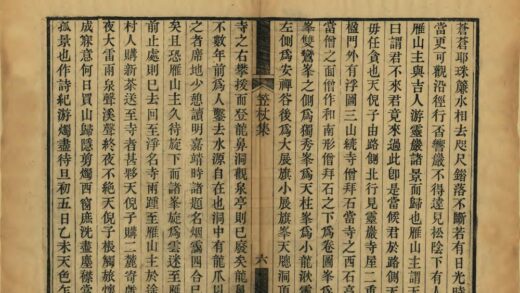 蒼蒼耶珠簾水相去咫尺鏘落不斷若有日光時
當更可觀沿徑行杏嚮巖不得遶見松陰下有人
雁山主與吉人游靈巖諸景而歸也雁山主請天
曰謂君不來君竟來過此卽是當候君於路側天
毋任貪也天倪子由路側北行見靈巖寺屋二重
楹門外有浮圖三山繞寺僧拜石當寺之西石高
當僧之面僧作和南形僧拜石之下爲卷圖峯
峯雙鸞峯之側爲獨秀峯爲天柱峯爲小龍湫靈
左側爲安禪谷後爲大展旗小展旗峯天洞頂
杖集
六
寺之右攀援而登龍鼻洞觀泉亭則已廢矣龍鼻
不數年前爲人鑿去水源自在也洞中有龍爪以
之者席地少憩讀明嘉靖時諸題名烟靄四合已
矣且恐雁山主久待旋下而諸峯旋爲雲迷至雁
前止處則已去回至淨名寺雨踵至雁山主於途
村人購新茶送至寺者甚夥天倪子購二簏寄
夜大雷雨泉聲溪聲終夜不絕天倪子根觸旅懷
成寐意何日買山歸隱剪燭西窗庶洗盡塵襟當
孤景也作詩紀游燭盡待旦初五日乙未天色乍